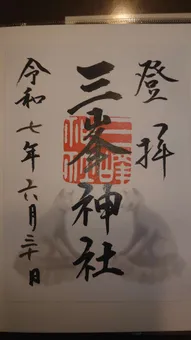 登拝
三峯神社
令和七年六月三十日